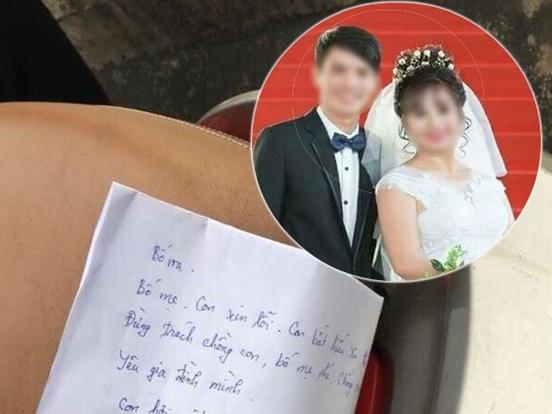 Bố mẹ.
Bố mẹ. Con xin lỗi. Con bất hiếu
Đừng trách chồng con, bố mẹ nhé. Chồng
Yêu gia đình mình.
Con